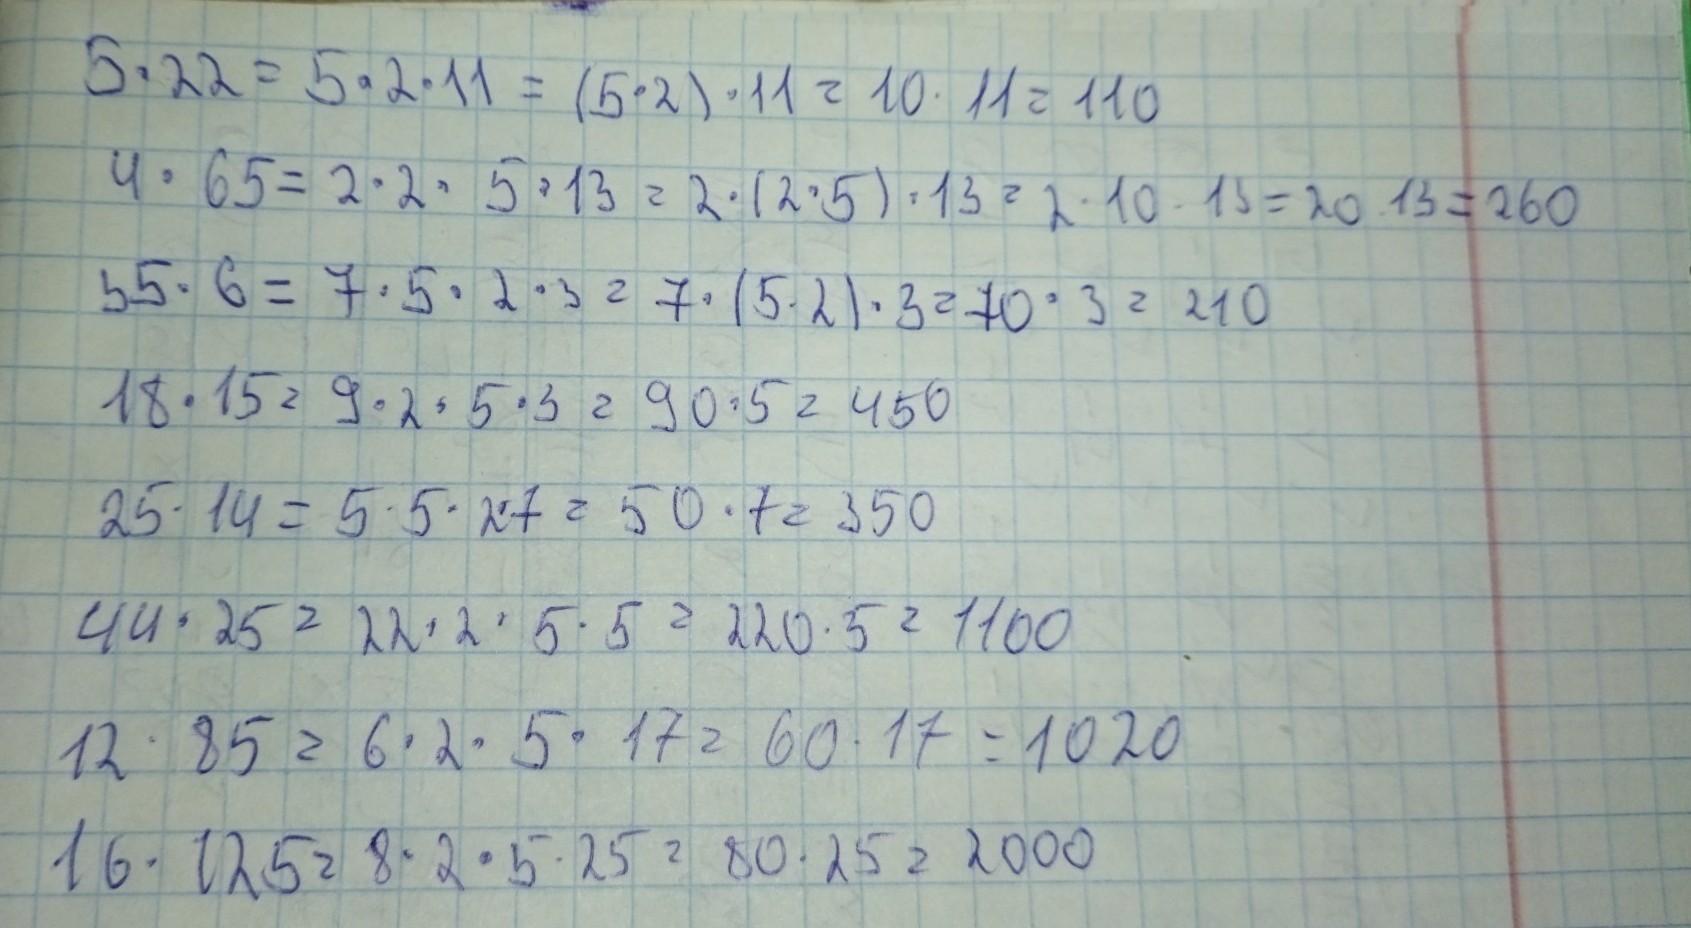 5·22=5·2·11=(5·2)·11=10·11=110
4·65=2·2·5·13=2·(2·5)·13=2·10·13=20·13=260
35·6=7·5·2·3=7·(5·2)·3=70·3=210
18·15=9·2·5·3=90·5=450
25·14=5·5·2·7=50·7=350
44·25=22·2·5·5=220·5=1100
12·85=6·2·5·17=60·17=1020
16·125=8·2·5·25=80·25=2000